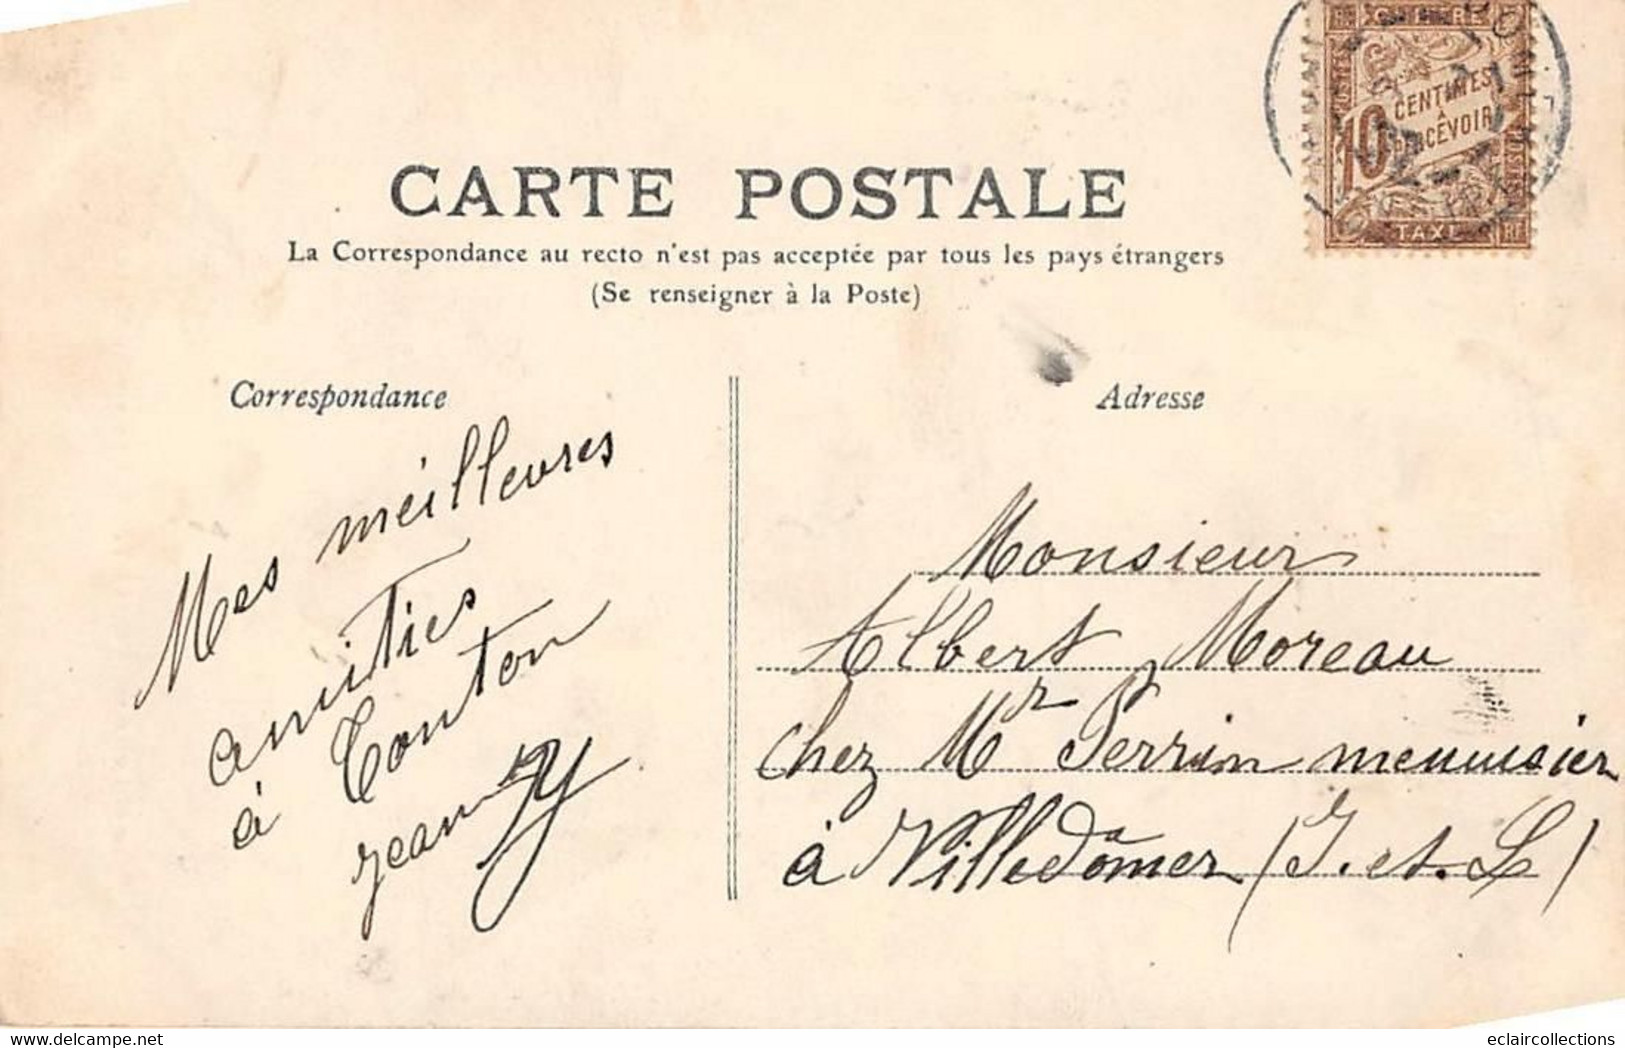 CARTE POSTALE
La Correspondance au recto n'est pas acceptée par tous les pays étrangers
(Se renseigner à la Poste)
CHIFFRE
10 CENTIMES
A
PERCEVOIR
TAXE
RF
Correspondance
Mes meilleures
amitiés
à Tonton
Jean
Adresse
Monsieur
Albert Moreau
chez Mr Perrin menuisier
à Villedômer (I. et. L)
eclaircollections